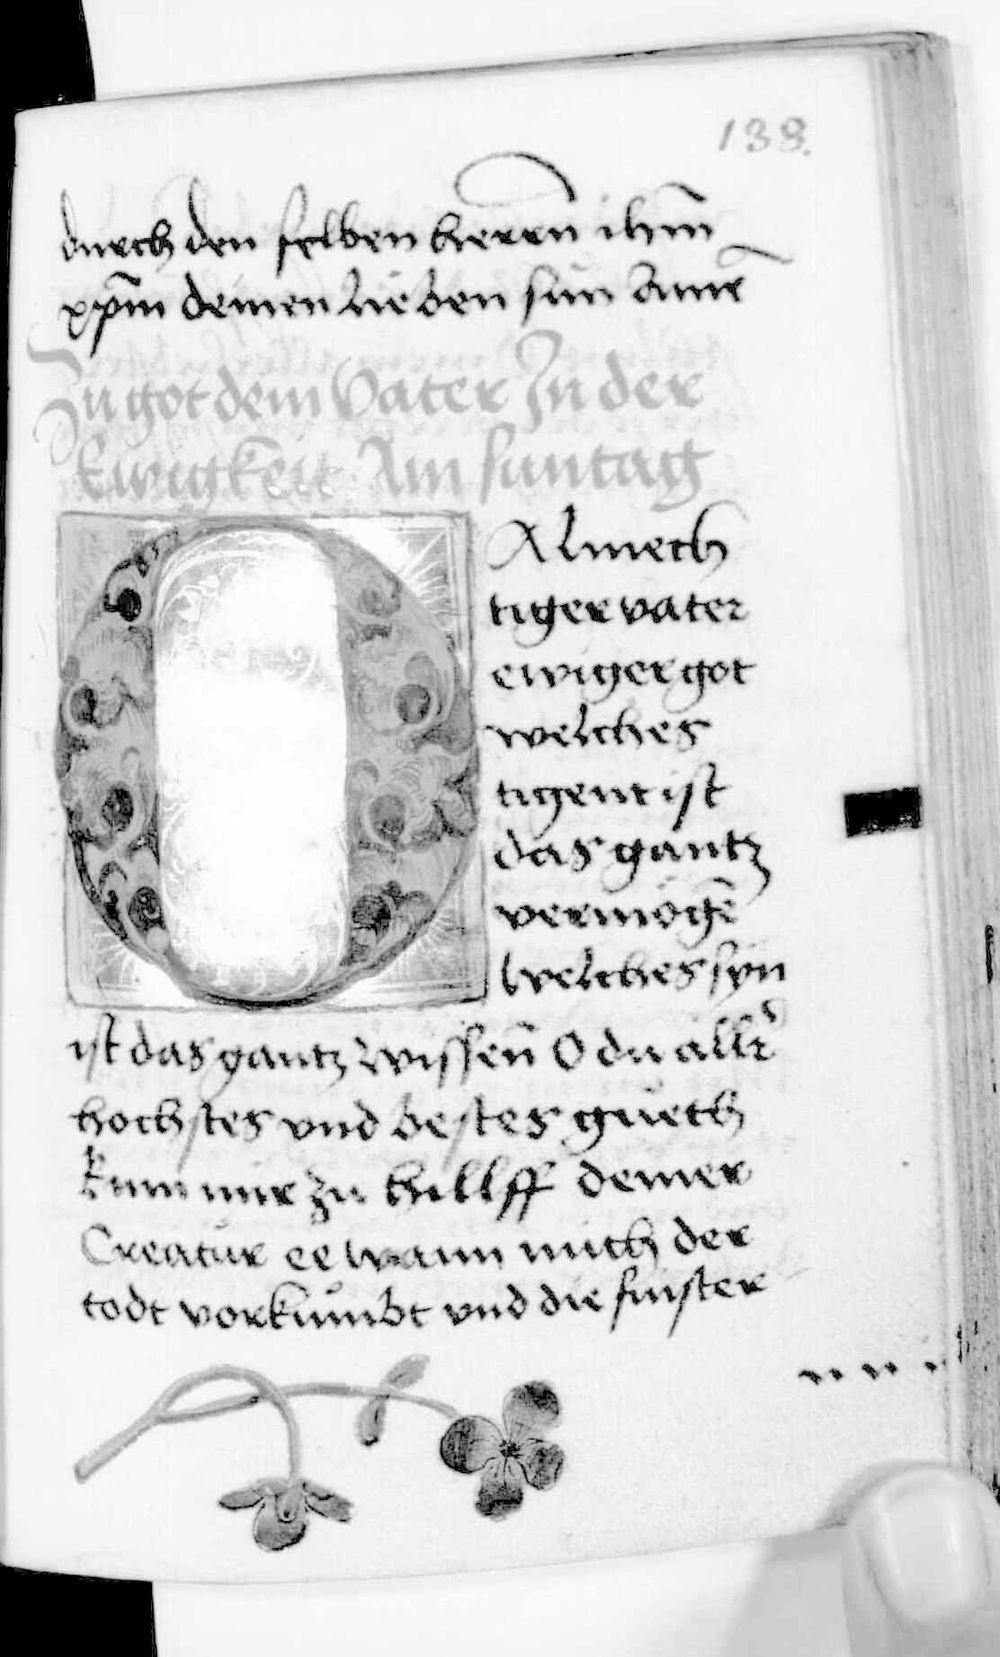 138.
durch den selben herrn ihm̄
xpm̄ deinen lieben sun Amē
Zu got dem Vater In der
Ewigkeit Am suntag
O Almech
tiger vater
ewiger got
welches
tigent ist
das gantz
vermögē
welches syn
ist das gantz wissen̄ O du aller
hochstes vnd bestes gueth
kum mir zu hillff deiner
Creatur ee wann mich der
todt vorkumbt vnd die finster